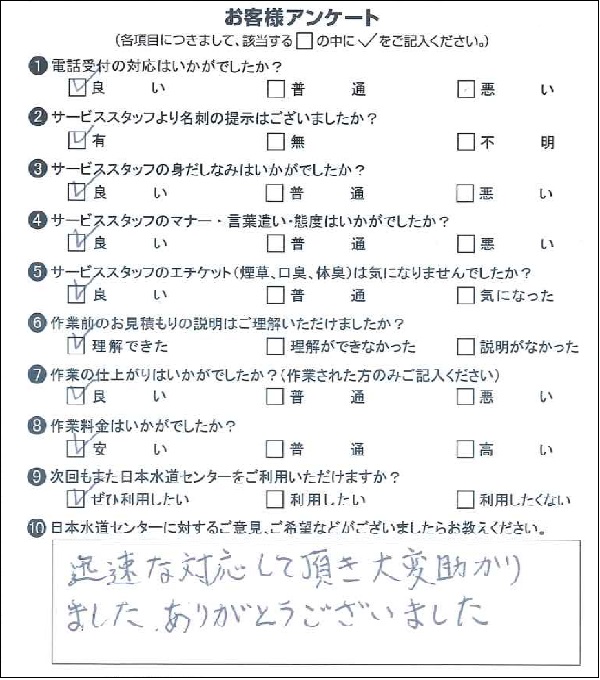 お客様アンケート
(各項目につきまして、該当する□の中に✓をご記入ください。)
❶電話受付の対応はいかがでしたか?
☑良い □普通 □悪い
❷サービススタッフより名刺の提示はございましたか?
☑有 □無 □不明
❸サービススタッフの身だしなみはいかがでしたか?
☑良い □普通 □悪い
❹サービススタッフのマナー・言葉遣い・態度はいかがでしたか?
☑良い □普通 □悪い
❺サービススタッフのエチケット(煙草、口臭、体臭)は気になりませんでしたか?
☑良い □普通 □気になった
❻作業前のお見積もりの説明はご理解いただけましたか?
☑理解できた □理解ができなかった □説明がなかった
❼作業の仕上がりはいかがでしたか?(作業された方のみご記入ください)
☑良い □普通 □悪い
❽作業料金はいかがでしたか?
☑安い □普通 □高い
❾次回もまた日本水道センターをご利用いただけますか?
☑ぜひ利用したい □利用したい □利用したくない
❿日本水道センターに対するご意見、ご希望などがございましたらお教えください。
迅速な対応して頂き大変助かり
ました ありがとうございました